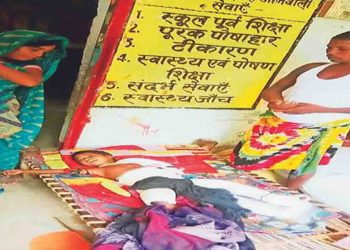 सेवाएँ
1. स्कूल पूर्व शिक्षा
2. पूरक पोषाहार
3. टीकाकरण
4. स्वास्थ्य एवं पोषण
शिक्षा
5 संदर्भ सेवाएँ
6 स्वास्थ्य जाँच